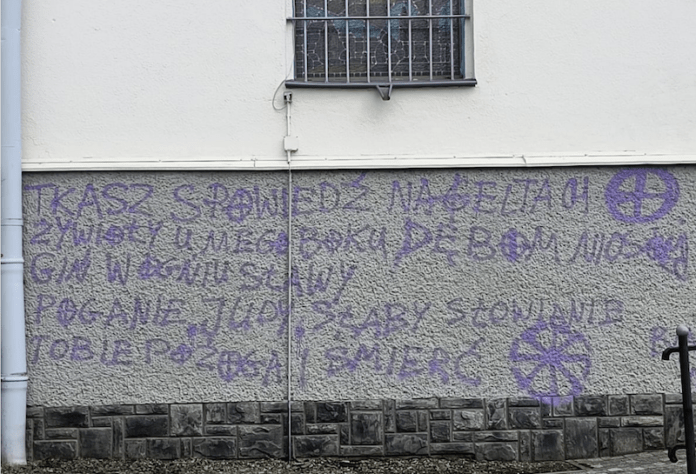 TKASZ SPOWIEDŹ NAGELTACH
ŻYWIOŁY U MEGO BOKU DĘBOM
GIŃ W OGNIU SŁAWY
POGANIE, JUDY, SŁABY SŁOWIANIE
TOBIE POŻOGA I ŚMIERĆ